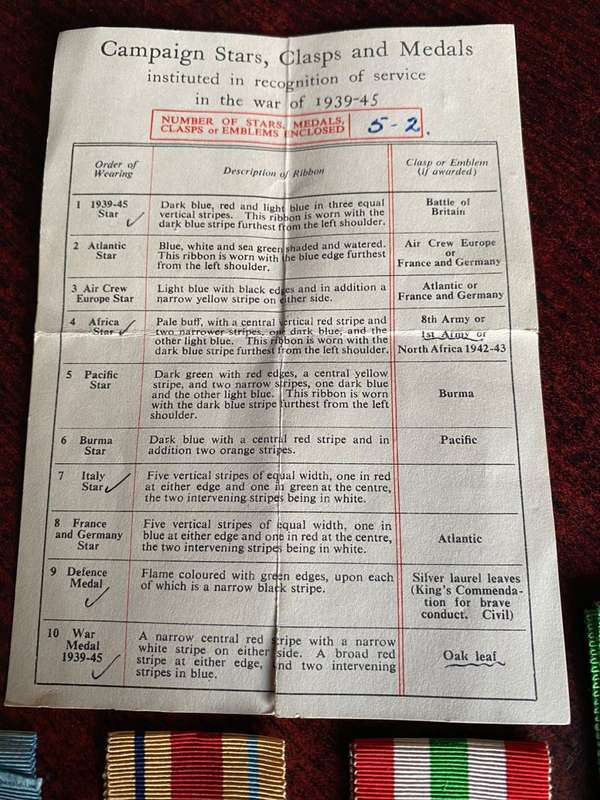 Campaign Stars, Clasps and Medals
instituted in recognition of service
in the war of 1939-45
NUMBER OF STARS, MEDALS,
CLASPS or EMBLEMS ENCLOSED
5-2.
Order of
Wearing
Description of Ribbon
Clasp or Emblem
(if awarded)
1 1939-45
Star
Dark blue, red and light blue in three equal
vertical stripes. This ribbon is worn with the
dark blue stripe furthest from the left shoulder.
Battle of
Britain
2 Atlantic
Star
Blue, white and sea green shaded and watered.
This ribbon is worn with the blue edge furthest
from the left shoulder.
Air Crew Europe
or
France and Germany
3 Air Crew
Europe Star
Light blue with black edges and in addition a
narrow yellow stripe on either side.
Atlantic or
France and Germany
4 Africa
Star
Pale buff, with a central vertical red stripe and
two narrower stripes, one dark blue, and the
other light blue. This ribbon is worn with the
dark blue stripe furthest from the left shoulder.
8th Army or
1st Army or
North Africa 1942-43
5 Pacific
Star
Dark green with red edges, a central yellow
stripe, and two narrow stripes, one dark blue
and the other light blue. This ribbon is worn
with the dark blue stripe furthest from the left
shoulder.
Burma
6 Burma
Star
Dark blue with a central red stripe and in
addition two orange stripes.
Pacific
7 Italy
Star
Five vertical stripes of equal width, one in red
at either edge and one in green at the centre,
the two intervening stripes being in white.
8 France
and Germany
Star
Five vertical stripes of equal width, one in
blue at either edge and one in red at the centre,
the two intervening stripes being in white.
Atlantic
9 Defence
Medal
Flame coloured with green edges, upon each
of which is a narrow black stripe.
Silver laurel leaves
(King's Commenda-
tion for brave
conduct. Civil)
10 War
Medal
1939-45
A narrow central red stripe with a narrow
white stripe on either side. A broad red
stripe at either edge, and two intervening
stripes in blue.
Oak leaf